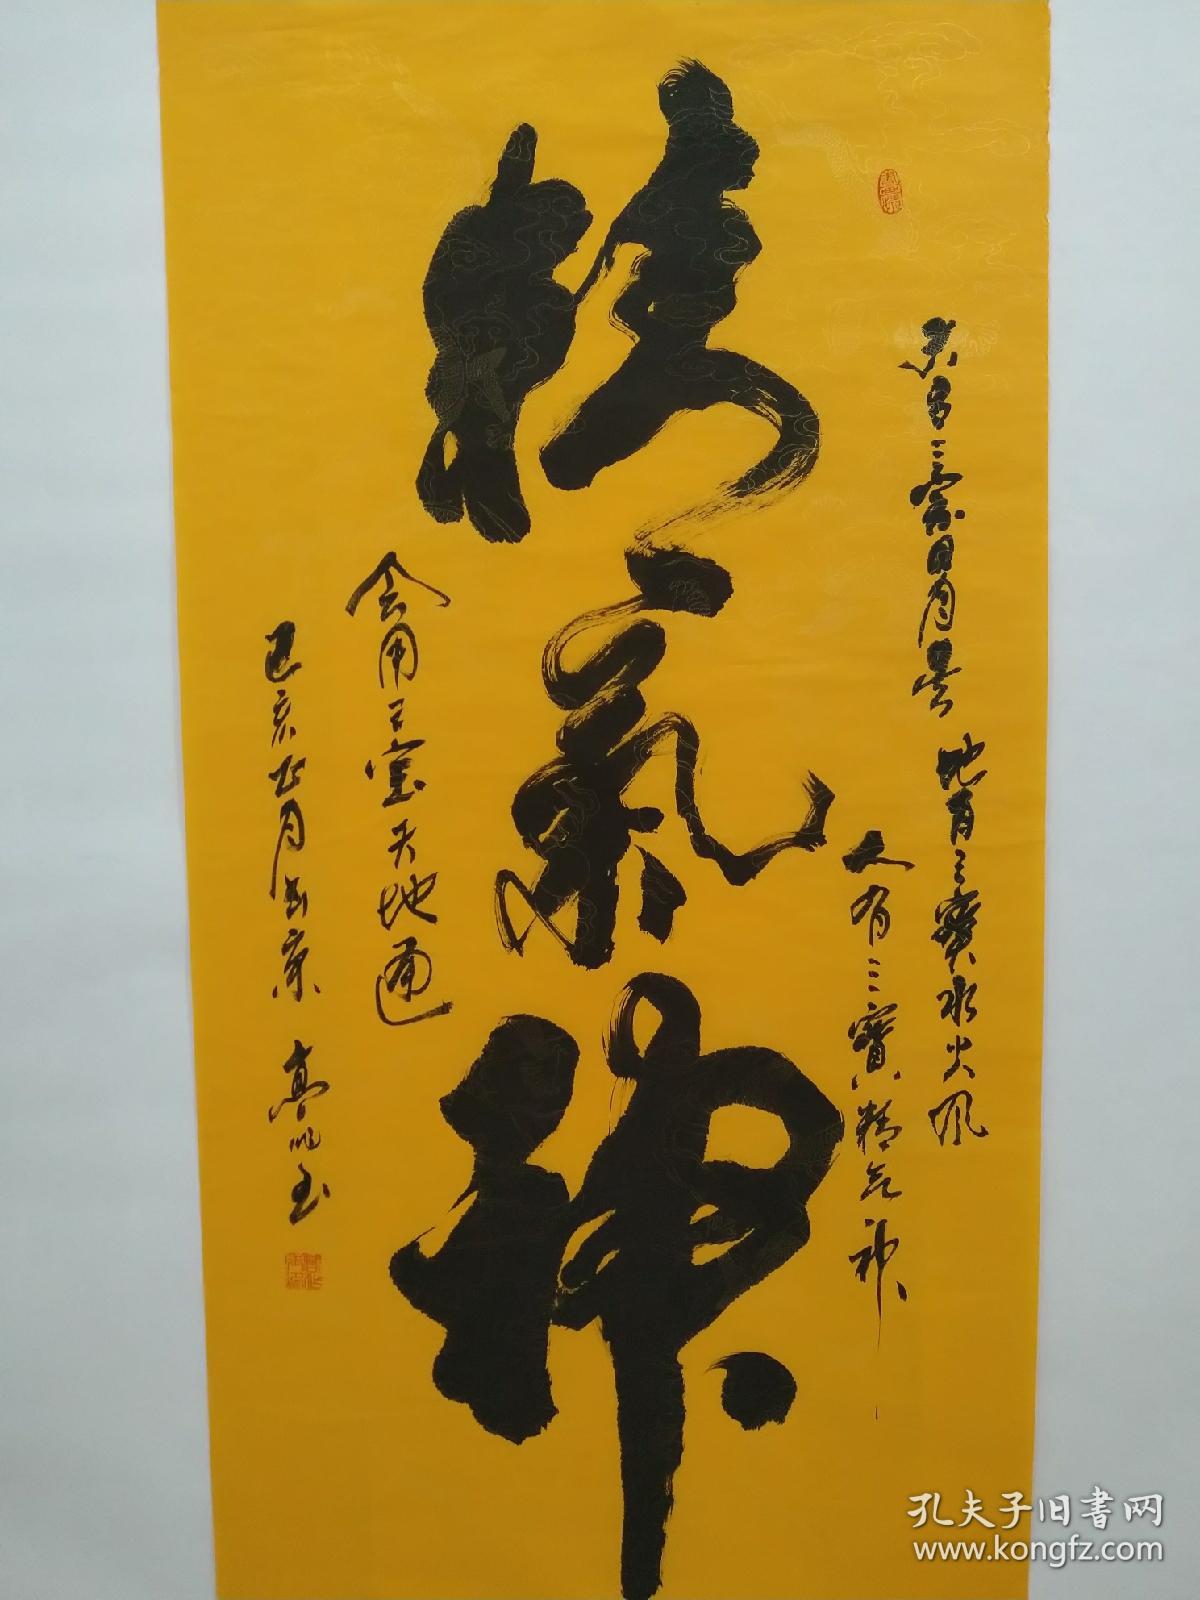 精氣神
天有三寶日月星
地有三寶水火風
人有三寶精气神
会用三宝天地通
己亥
孔夫子旧書网
www.kongfz.com